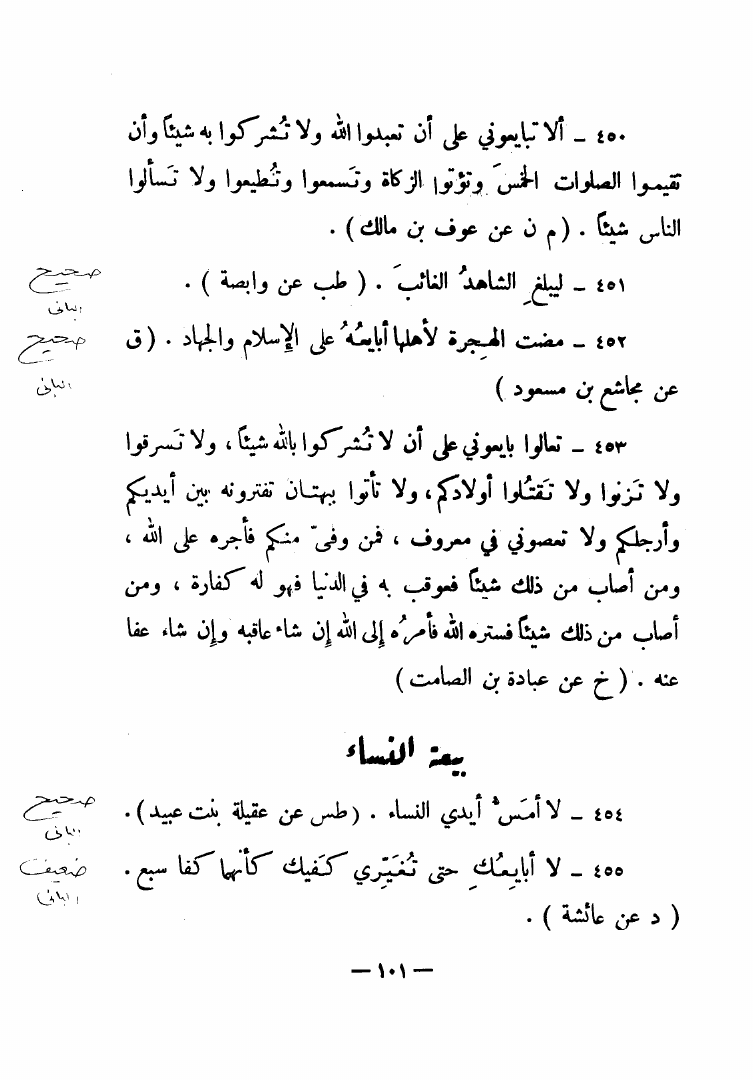 ٤٥٠ - ألا تبايعوني على أن تعبدوا الله ولا تُشركوا به شيئاً وأن
تقيموا الصلوات الخمسَ وتؤتوا الزكاة وتَسمعوا وتُطيعوا ولا تَسألوا
الناس شيئاً . ( م ن عن عوف بن مالك ) .
٤٥١ - ليبلغِ الشاهدُ الغائبَ . ( طب عن وابصة ) .
صحيح
البانى
٤٥٢ - مضت الهجرة لأهلها أبايعُهُ على الإسلام والجهاد . ( ق
صحيح
عن مجاشع بن مسعود )
البانى
٤٥٣ - تعالوا بايعوني على أن لا تُشركوا بالله شيئاً ، ولا تَسرقوا
ولا تَزنوا ولا تَقتُلوا أولادكم ، ولا تأتوا ببهتان تفترونه بين أيديكم
وأرجلكم ولا تعصوني في معروف ، فمن وفىّ منكم فأجره على الله ،
ومن أصاب من ذلك شيئاً فعوقب به في الدنيا فهو له كفارة ، ومن
أصاب من ذلك شيئاً فستره الله فأمرُه إلى الله إن شاء عاقبه وإن شاء عفا
عنه . ( خ عن عبادة بن الصامت )
بيعة النساء
٤٥٤ - لا أمَسُّ أيدي النساء . ( طس عن عقيلة بنت عبيد ) .
صحيح
البانى
٤٥٥ - لا أبايِعُكِ حتى تُغَيّرِي كَفيك كأنهما كفا سبع .
ضعيف
( د عن عائشة ) .
البانى
— ١٠١ —